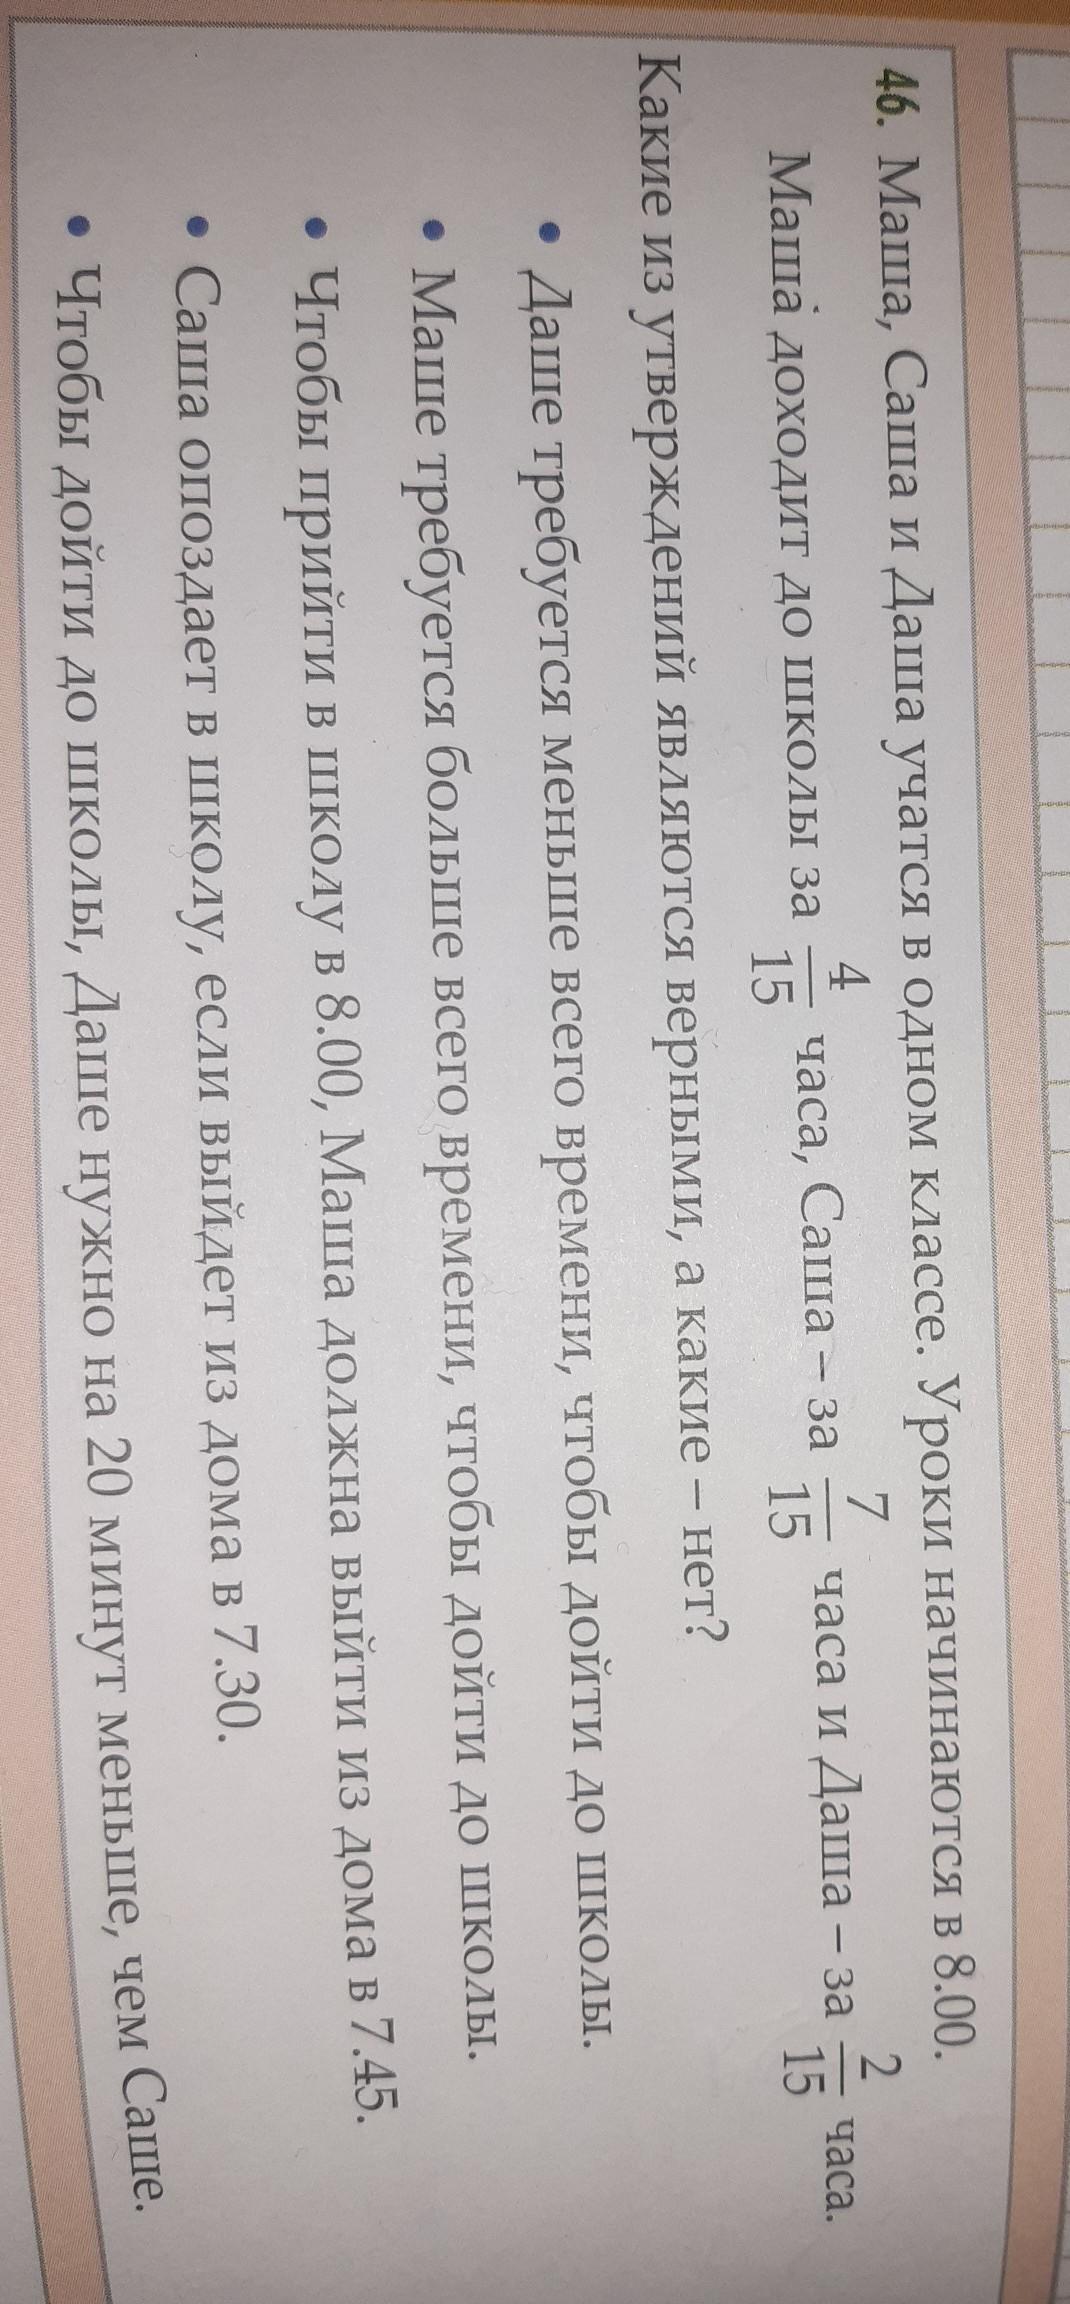 46. Маша, Саша и Даша учатся в одном классе. Уроки начинаются в 8.00.
Маша доходит до школы за 4/15 часа, Саша – за 7/15 часа и Даша – за 2/15 часа.
Какие из утверждений являются верными, а какие – нет?
• Даше требуется меньше всего времени, чтобы дойти до школы.
• Маше требуется больше всего времени, чтобы дойти до школы.
• Чтобы прийти в школу в 8.00, Маша должна выйти из дома в 7.45.
• Саша опоздает в школу, если выйдет из дома в 7.30.
• Чтобы дойти до школы, Даше нужно на 20 минут меньше, чем Саше.